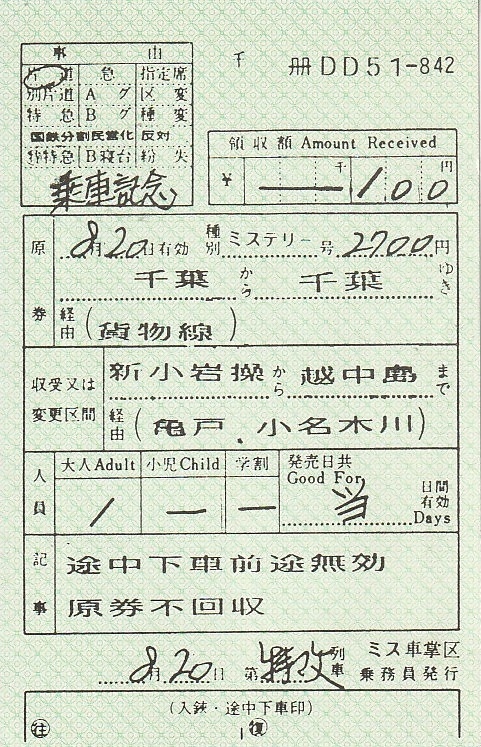 千 冊DD51-842
事 由
片道 急 指定席
別片道 Aグ 区変
特急 Bグ 種変
国鉄分割民営化 反対
特特急 B寝台 紛失
乗車記念
領収額 Amount Received
千 円
¥ ― 100
原券
8月20日有効 種別 ミステリー号 2700円
千葉から 千葉ゆき
経由(貨物線)
収受又は変更区間
新小岩操から 越中島まで
経由(亀戸、小名木川)
人員
大人Adult 小児Child 学割 発売日共 Good For 日間有効 Days
1 ― ― 当
記事
途中下車前途無効
原券不回収
8月20日 第特改列車 ミス車掌区乗務員発行
(入鋏・途中下車印)
往 復